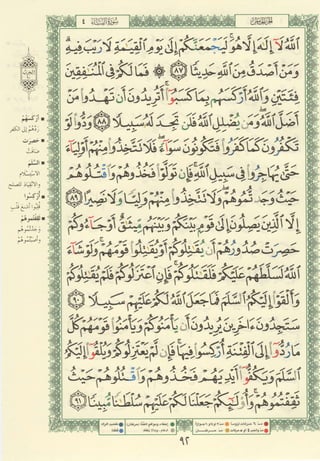 سورة النساء ٤
الجزء الخامس
ٱللَّهُ لَآ إِلَٰهَ إِلَّا هُوَ لَيَجْمَعَنَّكُمْ إِلَىٰ يَوْمِ ٱلْقِيَٰمَةِ لَا رَيْبَ فِيهِ
وَمَنْ أَصْدَقُ مِنَ ٱللَّهِ حَدِيثًا ٨٧ ۞ فَمَا لَكُمْ فِى ٱلْمُنَٰفِقِينَ
فِئَتَيْنِ وَٱللَّهُ أَرْكَسَهُم بِمَا كَسَبُوٓا۟ أَتُرِيدُونَ أَن تَهْدُوا۟ مَنْ
أَضَلَّ ٱللَّهُ وَمَن يُضْلِلِ ٱللَّهُ فَلَن تَجِدَ لَهُۥ سَبِيلًا ٨٨ وَدُّوا۟ لَوْ
تَكْفُرُونَ كَمَا كَفَرُوا۟ فَتَكُونُونَ سَوَآءً فَلَا تَتَّخِذُوا۟ مِنْهُمْ أَوْلِيَآءَ
حَتَّىٰ يُهَاجِرُوا۟ فِى سَبِيلِ ٱللَّهِ فَإِن تَوَلَّوْا۟ فَخُذُوهُمْ وَٱقْتُلُوهُمْ
حَيْثُ وَجَدتُّمُوهُمْ وَلَا تَتَّخِذُوا۟ مِنْهُمْ وَلِيًّا وَلَا نَصِيرًا ٨٩
إِلَّا ٱلَّذِينَ يَصِلُونَ إِلَىٰ قَوْمٍۭ بَيْنَكُمْ وَبَيْنَهُم مِّيثَٰقٌ أَوْ جَآءُوكُمْ
حَصِرَتْ صُدُورُهُمْ أَن يُقَٰتِلُوكُمْ أَوْ يُقَٰتِلُوا۟ قَوْمَهُمْ وَلَوْ شَآءَ
ٱللَّهُ لَسَلَّطَهُمْ عَلَيْكُمْ فَلَقَٰتَلُوكُمْ فَإِنِ ٱعْتَزَلُوكُمْ فَلَمْ يُقَٰتِلُوكُمْ
وَأَلْقَوْا۟ إِلَيْكُمُ ٱلسَّلَمَ فَمَا جَعَلَ ٱللَّهُ لَكُمْ عَلَيْهِمْ سَبِيلًا ٩٠
سَتَجِدُونَ ءَاخَرِينَ يُرِيدُونَ أَن يَأْمَنُوكُمْ وَيَأْمَنُوا۟ قَوْمَهُمْ كُلَّ
مَا رُدُّوٓا۟ إِلَى ٱلْفِتْنَةِ أُرْكِسُوا۟ فِيهَا فَإِن لَّمْ يَعْتَزِلُوكُمْ وَيُلْقُوٓا۟ إِلَيْكُمُ
ٱلسَّلَمَ وَيَكُفُّوٓا۟ أَيْدِيَهُمْ فَخُذُوهُمْ وَٱقْتُلُوهُمْ حَيْثُ
ثَقِفْتُمُوهُمْ وَأُو۟لَٰٓئِكُمْ جَعَلْنَا لَكُمْ عَلَيْهِمْ سُلْطَٰنًا مُّبِينًا ٩١
أركسهم
ردهم إلى الكفر
حصرت
ضاقت
السلم
الاستسلام
والانقياد للصلح
أركسوا
ثقفتموهم
وجدتموهم
٩٢